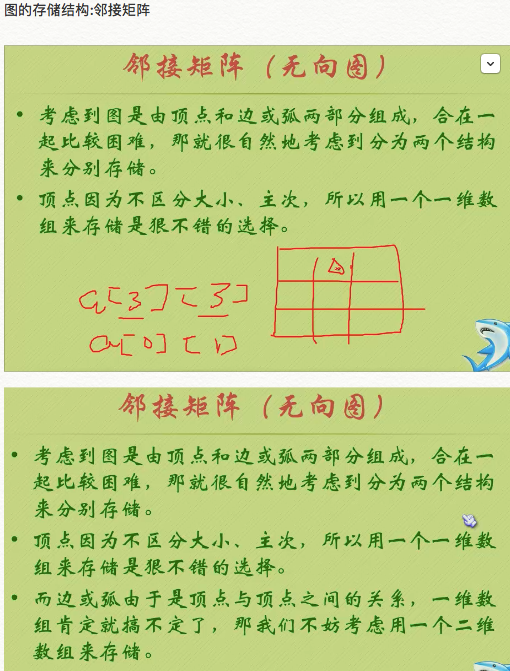 图的存储结构:邻接矩阵
邻接矩阵（无向图）
• 考虑到图是由顶点和边或弧两部分组成，合在一
起比较困难，那就很自然地考虑到分为两个结构
来分别存储。
• 顶点因为不区分大小、主次，所以用一个一维数
组来存储是狠不错的选择。
a[3][3]
a[0][1]
邻接矩阵（无向图）
• 考虑到图是由顶点和边或弧两部分组成，合在一
起比较困难，那就很自然地考虑到分为两个结构
来分别存储。
• 顶点因为不区分大小、主次，所以用一个一维数
组来存储是狠不错的选择。
• 而边或弧由于是顶点与顶点之间的关系，一维数
组肯定就搞不定了，那我们不妨考虑用一个二维
数组来存储。